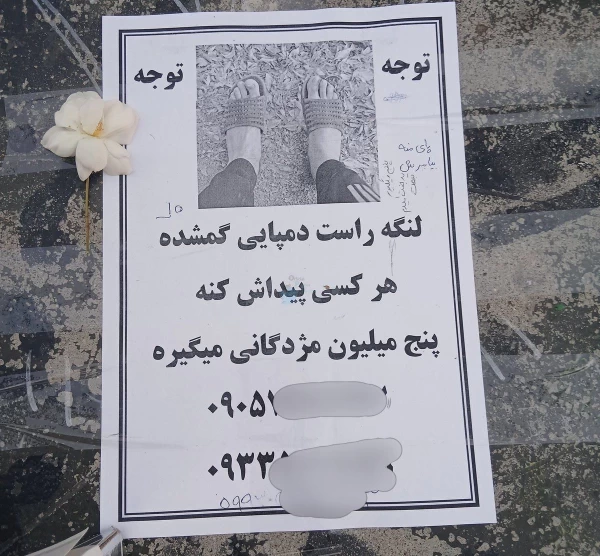 توجه
توجه
پای منه
لنگه راست دمپایی گمشده
هر کسی پیداش کنه
پنج میلیون مژدگانی میگیره
۰۹۰۵۱
۰۹۳۳۵
۵۹۹